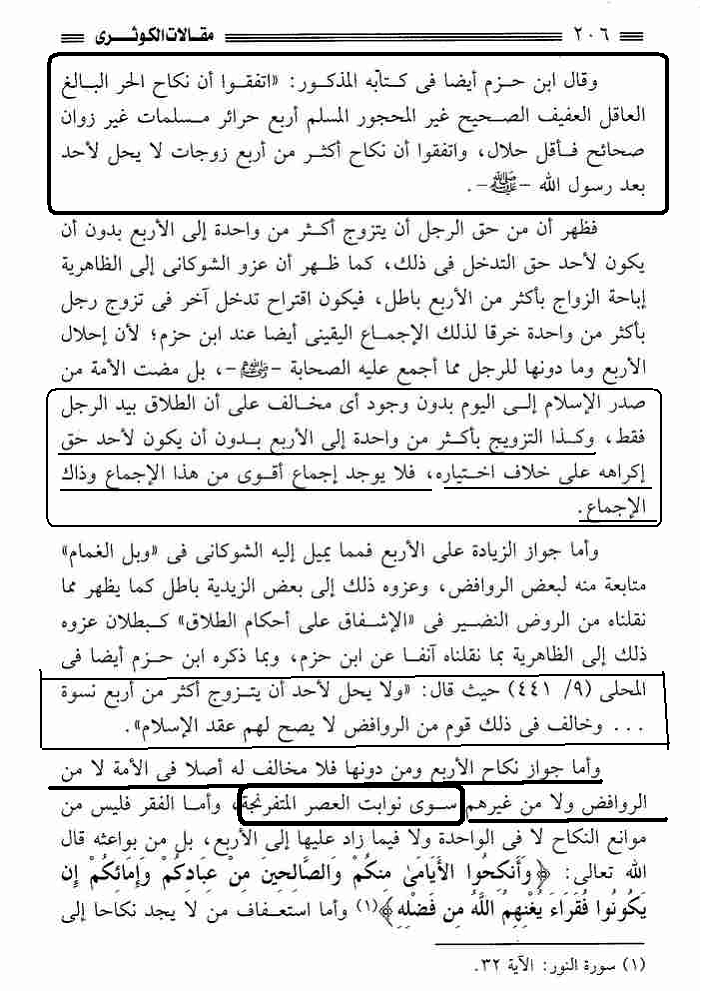 ٢٠٦ مقالات الكوثرى
وقال ابن حزم أيضا فى كتابه المذكور: «اتفقوا أن نكاح الحر البالغ
العاقل العفيف الصحيح غير المحجور المسلم أربع حرائر مسلمات غير زوان
صحائح فأقل حلال، واتفقوا أن نكاح أكثر من أربع زوجات لا يحل لأحد
بعد رسول الله -ﷺ-.
فظهر أن من حق الرجل أن يتزوج أكثر من واحدة إلى الأربع بدون أن
يكون لأحد حق التدخل فى ذلك، كما ظهر أن عزو الشوكانى إلى الظاهرية
إباحة الزواج بأكثر من الأربع باطل، فيكون اقتراح تدخل آخر فى تزوج رجل
بأكثر من واحدة خرقا لذلك الإجماع اليقينى أيضا عند ابن حزم؛ لأن إحلال
الأربع وما دونها للرجل مما أجمع عليه الصحابة -ﷺ-، بل مضت الأمة من
صدر الإسلام إلى اليوم بدون وجود أى مخالف على أن الطلاق بيد الرجل
فقط، وكذا التزويج بأكثر من واحدة إلى الأربع بدون أن يكون لأحد حق
إكراهه على خلاف اختياره، فلا يوجد إجماع أقوى من هذا الإجماع وذاك
الإجماع.
وأما جواز الزيادة على الأربع فمما يميل إليه الشوكانى فى «وبل الغمام»
متابعة منه لبعض الروافض، وعزوه ذلك إلى بعض الزيدية باطل كما يظهر مما
نقلناه من الروض النضير فى «الإشفاق على أحكام الطلاق» كبطلان عزوه
ذلك إلى الظاهرية بما نقلناه آنفا عن ابن حزم، وبما ذكره ابن حزم أيضا فى
المحلى (٩/ ٤٤١) حيث قال: «ولا يحل لأحد أن يتزوج أكثر من أربع نسوة
... وخالف فى ذلك قوم من الروافض لا يصح لهم عقد الإسلام».
وأما جواز نكاح الأربع ومن دونها فلا مخالف له أصلا فى الأمة لا من
الروافض ولا من غيرهم سوى نوابت العصر المتفرنجة، وأما الفقر فليس من
موانع النكاح لا فى الواحدة ولا فيما زاد عليها إلى الأربع، بل من بواعثه قال
الله تعالى: ﴿وَأَنكِحُوا الأَيَامَىٰ مِنكُمْ وَالصَّالِحِينَ مِنْ عِبَادِكُمْ وَإِمَائِكُمْ إِن
يَكُونُوا فُقَرَاءَ يُغْنِهِمُ اللَّهُ مِن فَضْلِهِ﴾(١) وأما استعفاف من لا يجد نكاحا إلى
(١) سورة النور: الآية ٣٢.